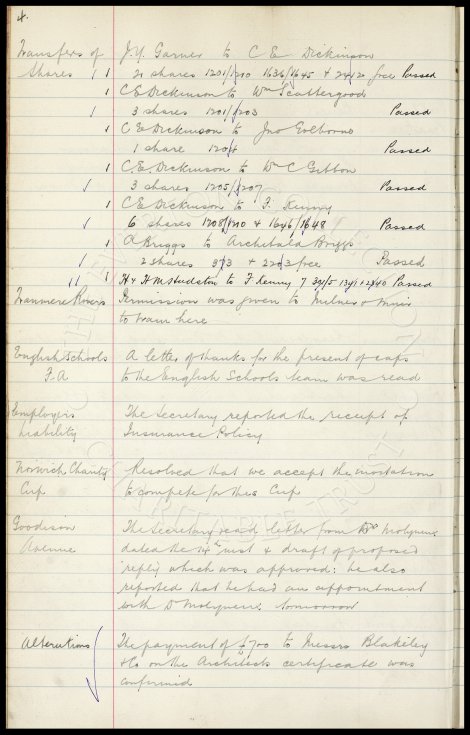 4.
Transfers of J.Y. Garner to C E Dickinson
Shares 21 shares 1201/1210 1636/1645 + 2412 free Passed
C E Dickinson to Wm Scattergood
3 shares 1201/1203 Passed
C E Dickinson to Jno Golborne
1 share 1204 Passed
C.E. Dickinson to Wm C Gibbon
3 shares 1205/1207 Passed
C E Dickinson to F. Kenny
6 shares 1208/1210 + 1646/1648 Passed
A Briggs to Archibald Briggs
2 shares 373 + 2203 free Passed
H + Hudston to F Kenny 7 Passed
Tranmere Rovers Permission was given to Milnes + Muir
to train here
English Schools A letter of thanks for the present of caps
F.A to the English Schools team was read
Employers The Secretary reported the receipt of
Liability Insurance Policy
Norwich Charity Resolved that we accept the invitation
Cup to compete for this Cup
Goodison The Secretary read letter from Dr Molyneux
Avenue dated the 14th inst + draft of proposed
reply which was approved: he also
reported that he had an appointment
with Dr Molyneux tomorrow
Alterations The payment of £700 to Messrs Blakeley
+ Co on the Architects certificate was
confirmed